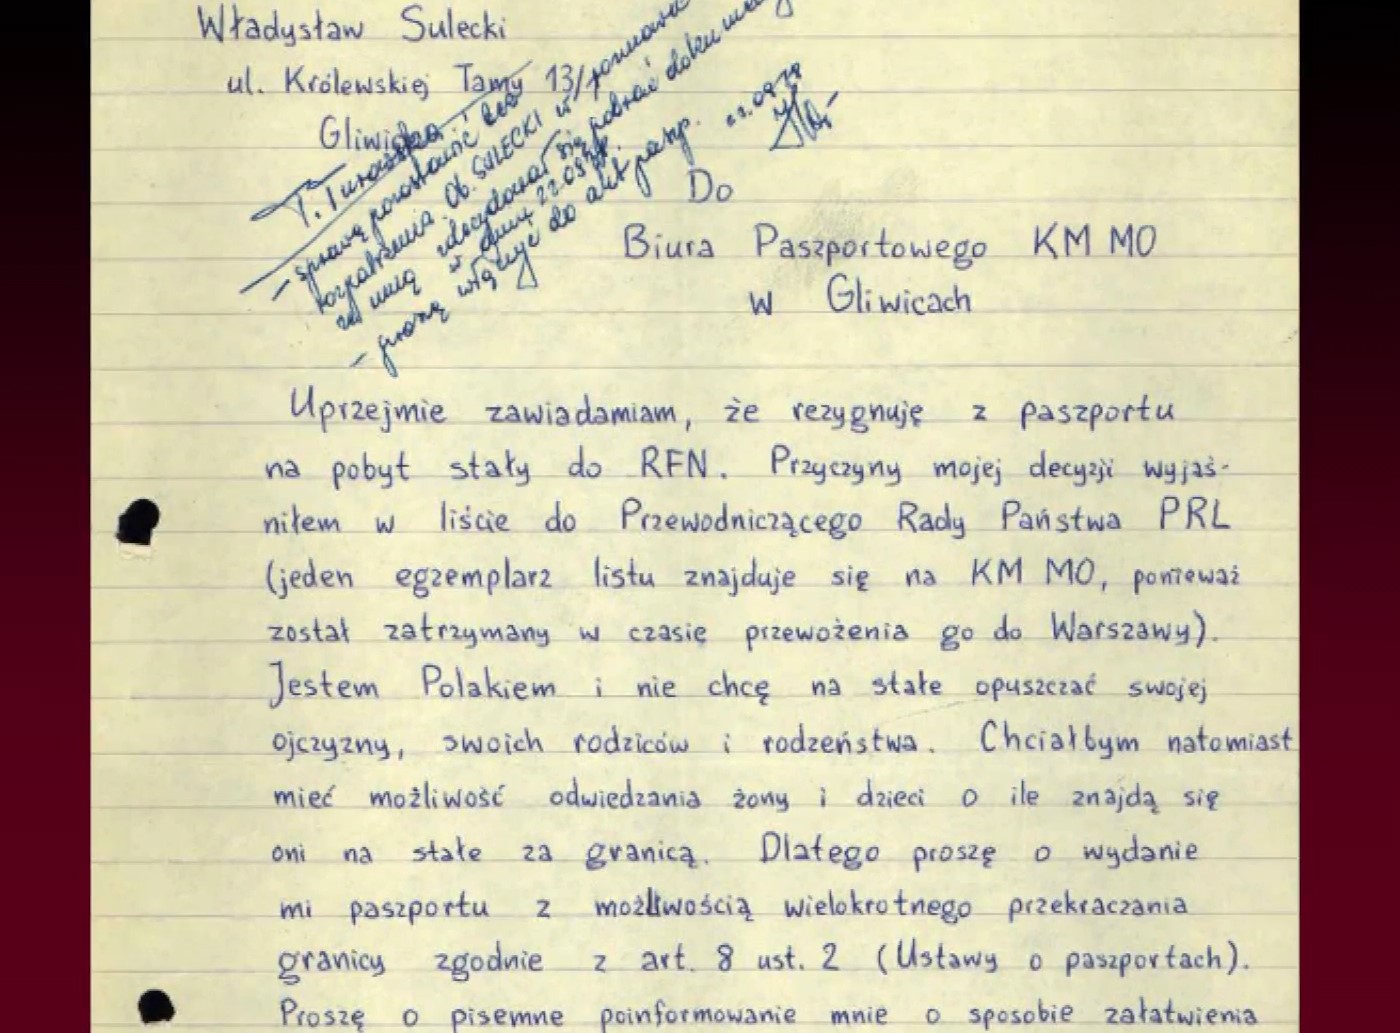 Władysław Sulecki
ul. Królewskiej Tamy 13/
Gliwice
T. Turańska
- sprawę pozostawić bez
rozpatrzenia Ob. SULECKI w
zdecydował się pobrać dokument
w dniu 22.09
- proszę włączyć do akt paszp.
22.09.78
Do
Biura Paszportowego KM MO
w Gliwicach
Uprzejmie zawiadamiam, że rezygnuję z paszportu
na pobyt stały do RFN. Przyczyny mojej decyzji wyjaś-
niłem w liście do Przewodniczącego Rady Państwa PRL
(jeden egzemplarz listu znajduje się na KM MO, ponieważ
został zatrzymany w czasie przewożenia go do Warszawy).
Jestem Polakiem i nie chcę na stałe opuszczać swojej
ojczyzny, swoich rodziców i rodzeństwa. Chciałbym natomiast
mieć możliwość odwiedzania żony i dzieci o ile znajdą się
oni na stałe za granicą. Dlatego proszę o wydanie
mi paszportu z możliwością wielokrotnego przekraczania
granicy zgodnie z art. 8 ust. 2 (Ustawy o paszportach).
Proszę o pisemne poinformowanie mnie o sposobie załatwienia